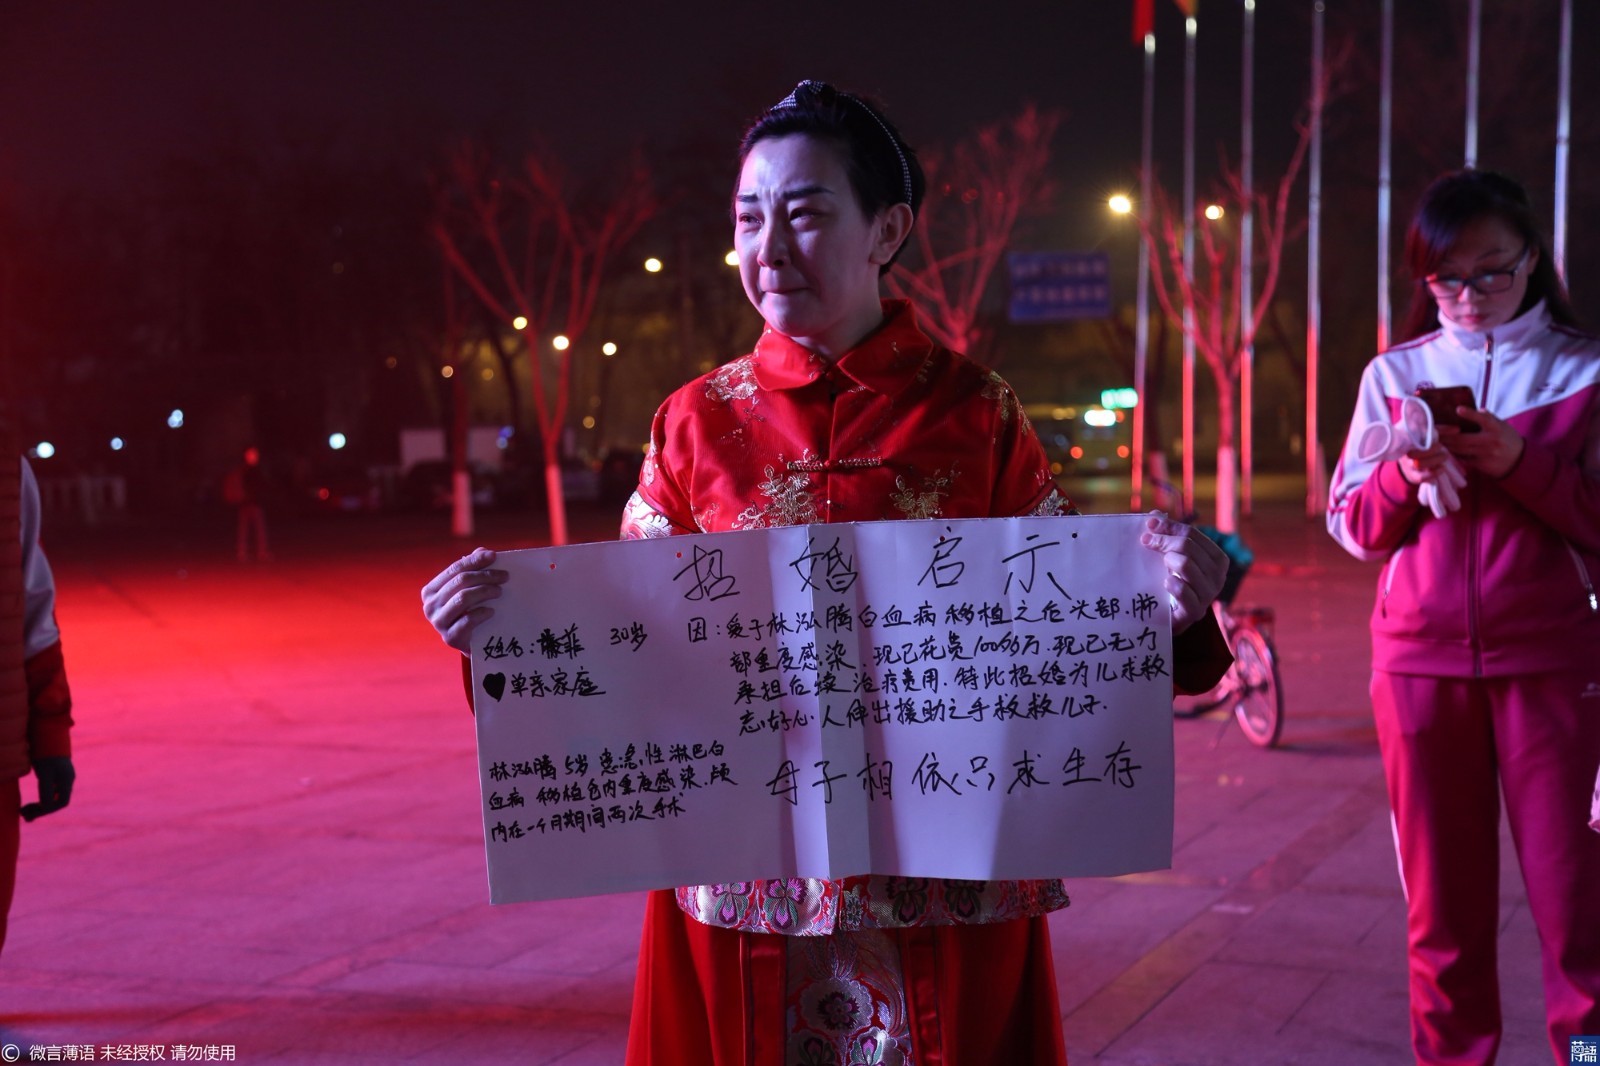 招婚启示
姓名:滕菲 30岁
单亲家庭
因:爱子林泓腾白血病移植之后头部.肺
部重度感染.现已花费100多万.现已无力
承担后续治疗费用.特此招婚为儿求救
志好心.人伸出援助之手救救儿子.
林泓腾5岁患急.性淋巴白
血病 移植仓内重度感染.颅
内在一个月期间两次手术
母子相依只求生存
© 微言薄语 未经授权 请勿使用
薄語